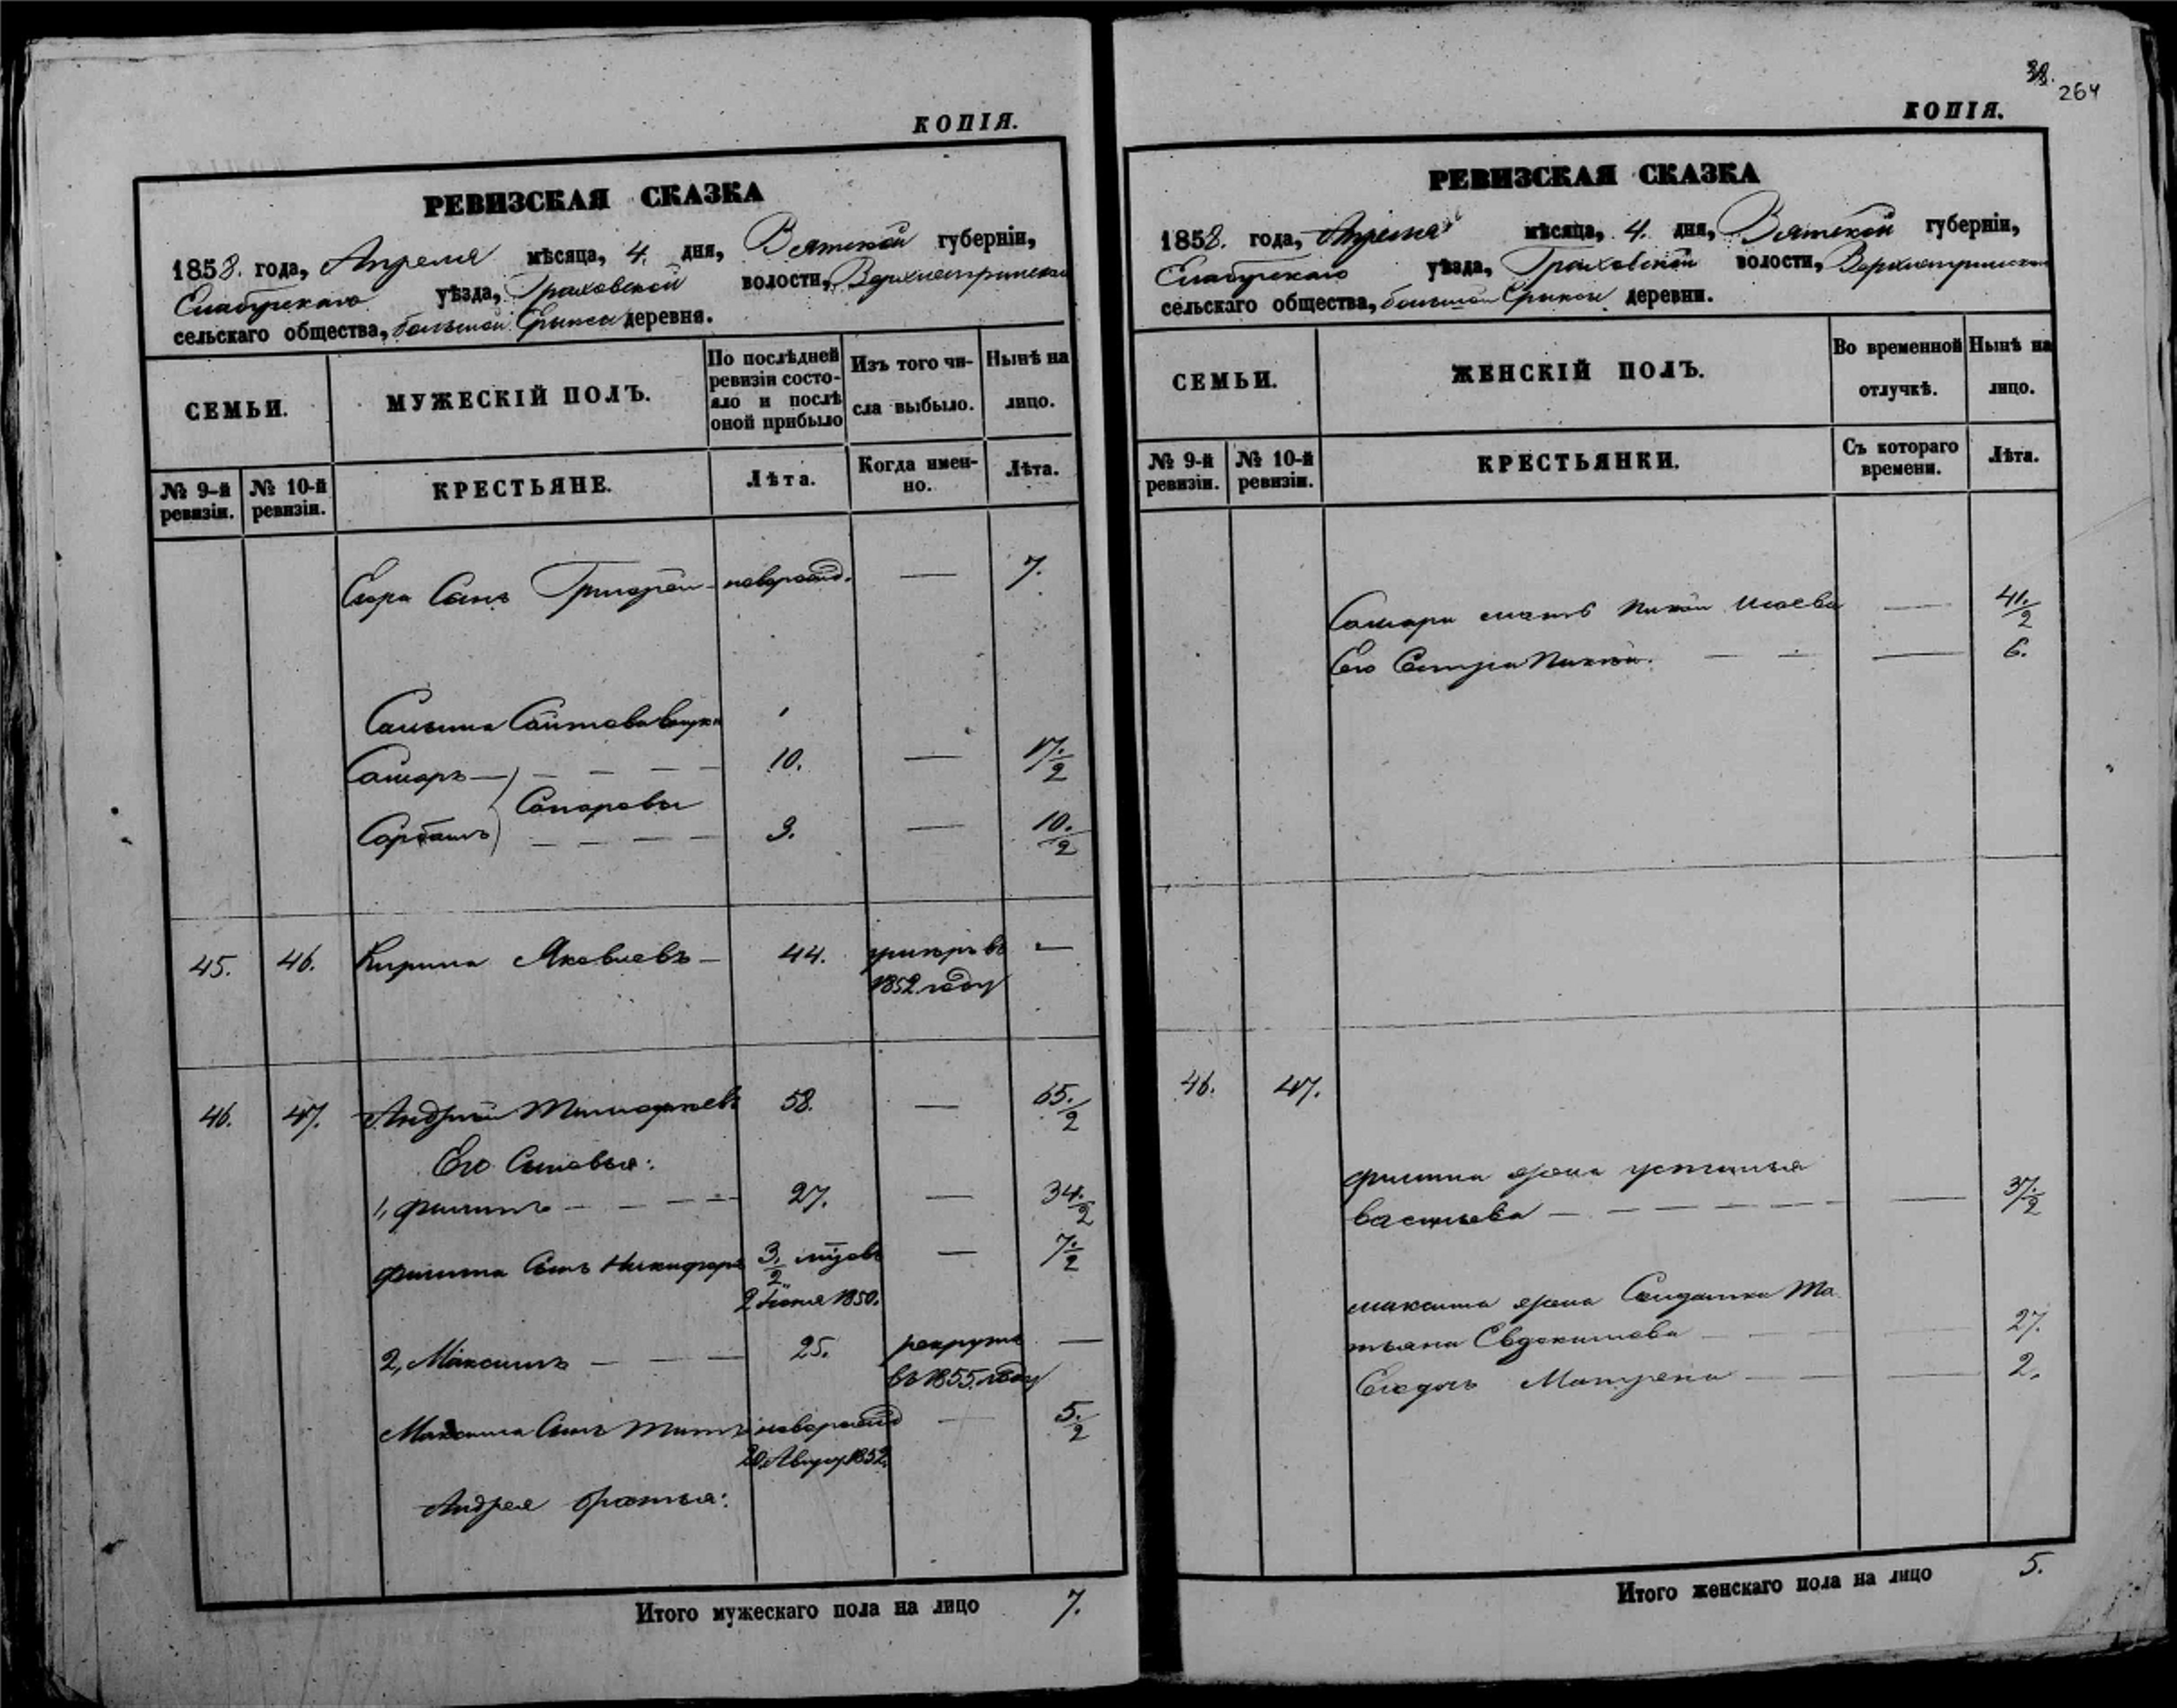 КОПІЯ.
РЕВИЗСКАЯ СКАЗКА
1858. года, Апреля мѣсяца, 4. дня, Вятской губерніи,
Елабужскаго уѣзда, Граховской волости,
сельскаго общества, большой деревня.
СЕМЬИ.
МУЖЕСКІЙ ПОЛЪ.
По послѣдней ревизіи состояло и послѣ оной прибыло
Изъ того числа выбыло.
Нынѣ на лицо.
№ 9-й ревизіи.
№ 10-й ревизіи.
КРЕСТЬЯНЕ.
Лѣта.
Когда именно.
Лѣта.
Сынъ Григорей новорожд. — 7.
10. — 17.
2
Сапаровы
3. — 10.
2
45. 46. Кирила Яковлевъ — 44. умеръ въ —
1852 году
46. 47. Андрей 58. — 65.
2
Его Сыновья:
1, Филипъ — — — 27. — 34.
2
Филипа Сынъ Никифоръ 3. — 7.
2 2
2 1850.
2, Максимъ — — 25. рекрутъ —
въ 1855 году
Максима Сынъ Титъ новорожд — 5.
2
20 Август 1852.
Андрея братья:
Итого мужескаго пола на лицо 7.
264
КОПІЯ.
РЕВИЗСКАЯ СКАЗКА
1858. года, Апреля мѣсяца, 4. дня, Вятской губерніи,
Елабужскаго уѣзда, Граховской волости,
сельскаго общества, большой деревни.
СЕМЬИ.
ЖЕНСКІЙ ПОЛЪ.
Во временной отлучкѣ.
Нынѣ на лицо.
№ 9-й ревизіи.
№ 10-й ревизіи.
КРЕСТЬЯНКИ.
Съ котораго времени.
Лѣта.
мать — 41.
2
Его Сестра — — — 6.
46. 47.
Филипа жена устинья
васильева — — — — — — 37.
2
максима жена Солдатка Та
тьяна Евдокимова — — 27.
Ея дочь Матрена — — — 2.
Итого женскаго пола на лицо 5.